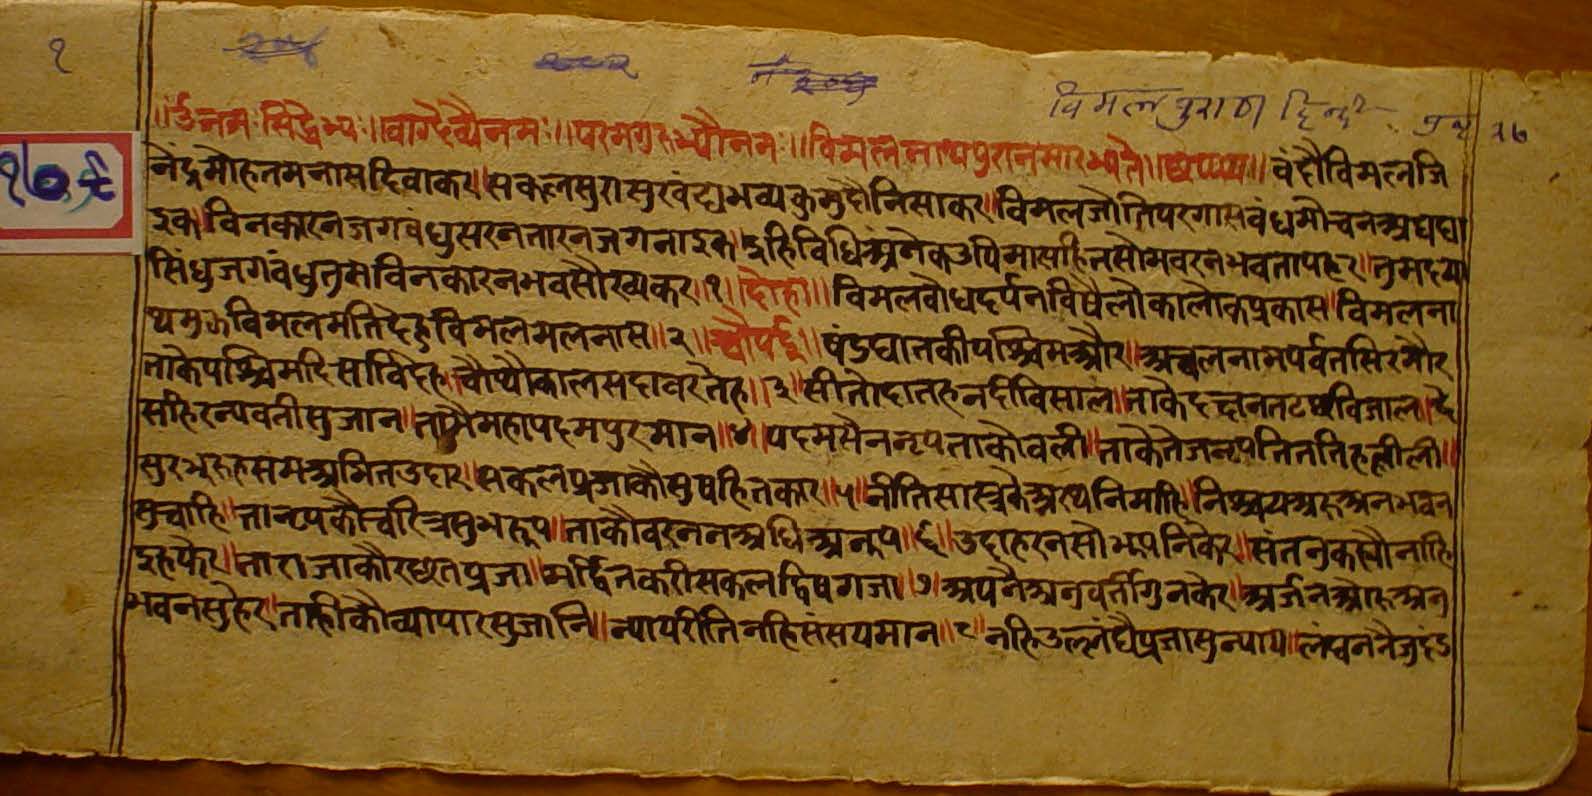 १
विमल पुराण हिन्दी
१७
॥ॐनमःसिद्धेभ्यः॥वाग्देव्यैनमः॥परमगुरुभ्यौनमः॥विमलनाथपुरानसारभ्यते॥छप्पय॥वंदौविमलजि
नेंद्रमोहतमनासदिवाकर॥सकलसुरासुरवंद्यभव्यकुमुदौनिसाकर॥विमलजोतिपरगासबंधमोचनअघघा
इक॥विनकारनजगबंधुसरनतारनजगनाइक॥इहिविधिअनेकउपिमासहितसोमवरनभवतापहर॥तुमदया
सिंधुजगबंधुतुमविनकारनभवसौख्यकर॥१॥दोहा॥विमलबोधदर्पनविषैलोकालोकप्रकास॥विमलना
थमुझविमलमतिदेहुविमलमलनास॥२॥चौपई॥षंडघातकीपश्चिमऔर॥अचलनामपर्वतसिरमौर
ताकेपश्चिमदिसाविदेह॥चौथौकालसदावरतेह॥३॥सीतोदातहनदीविसाल॥ताकेदछनतट
सहिरम्यवतीसुजान॥तामैमहापदमपुरमान॥४॥पदमसैननृपताकोवली॥ताकेतेजनृपति
सुरभूरुहसमअमितउदार॥सकलप्रजाकौसुषहितकार॥५॥नीतिसास्त्रकेअरथनिमाहि॥निश्चयअरुअनभवन
सुचाहि॥तानृपकौचरित्रसुभरूप॥ताकौवरननअधिअनूप॥६॥उदाहरनसोभूपनिकेर॥संतनुकस्योनाहि
इहफेर॥ताराजाकौरछतप्रजा॥मर्द्दितकरीसकलद्विषगजा॥७॥अपनैअनुवर्तीगुनकेर॥अर्जनऔरुअनु
भवनसुहेर॥ताहीकौव्यापारसुजानि॥न्यायरीतिनहिसंसयमान॥८॥नहिउलंघैप्रजासुन्याय॥